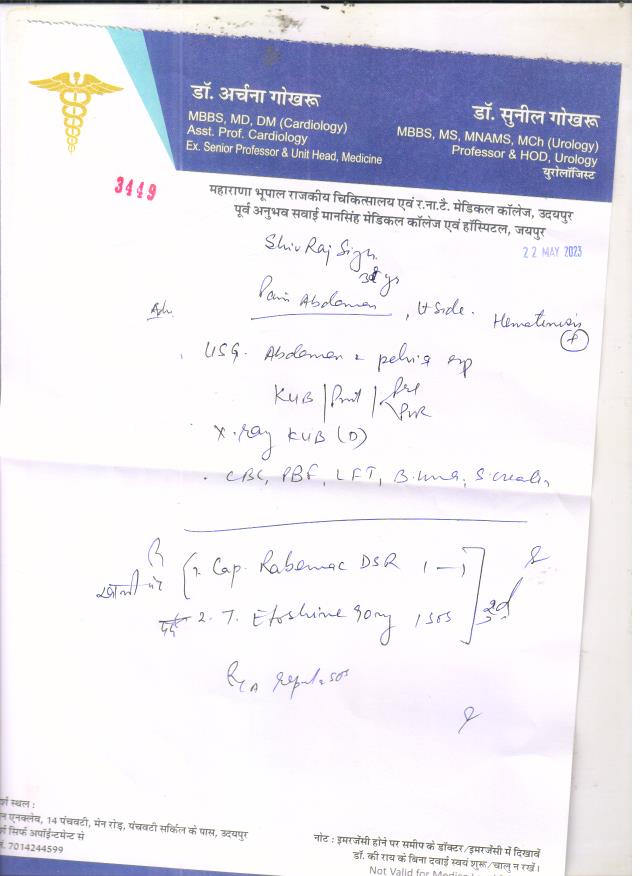 डॉ. अर्चना गोखरू
MBBS, MD, DM (Cardiology)
Asst. Prof. Cardiology
Ex. Senior Professor & Unit Head, Medicine
डॉ. सुनील गोखरू
MBBS, MS, MNAMS, MCh (Urology)
Professor & HOD, Urology
युरोलॉजिस्ट
3449
महाराणा भूपाल राजकीय चिकित्सालय एवं र.ना.टै. मेडिकल कॉलेज, उदयपुर
पूर्व अनुभव सवाई मानसिंह मेडिकल कॉलेज एवं हॉस्पिटल, जयपुर
22 MAY 2023
Shiv Raj Sigh
Pain Abdomen, side. Hematemesis
+
USG. Abdomen & pelvis
KUB | Prost |
PVR
X-ray KUB (D)
CBC, PBF, LFT, B. urea, S. creatin
खाली पेट 1. Cap. Rabemac DSR 1 —
दर्द 2. T. Etoshine 90mg 1 SOS
SOS
र्श स्थल :
न एनक्लेव, 14 पंचवटी, मेन रोड़, पंचवटी सर्किल के पास, उदयपुर
र्श सिर्फ अपॉईन्टमेन्ट से
नं. 7014244599
नोट : इमरजेंसी होने पर समीप के डॉक्टर/इमरजेंसी में दिखावें
डॉ. की राय के बिना दवाई स्वयं शुरू/चालु न रखें।
Not Valid for Medico